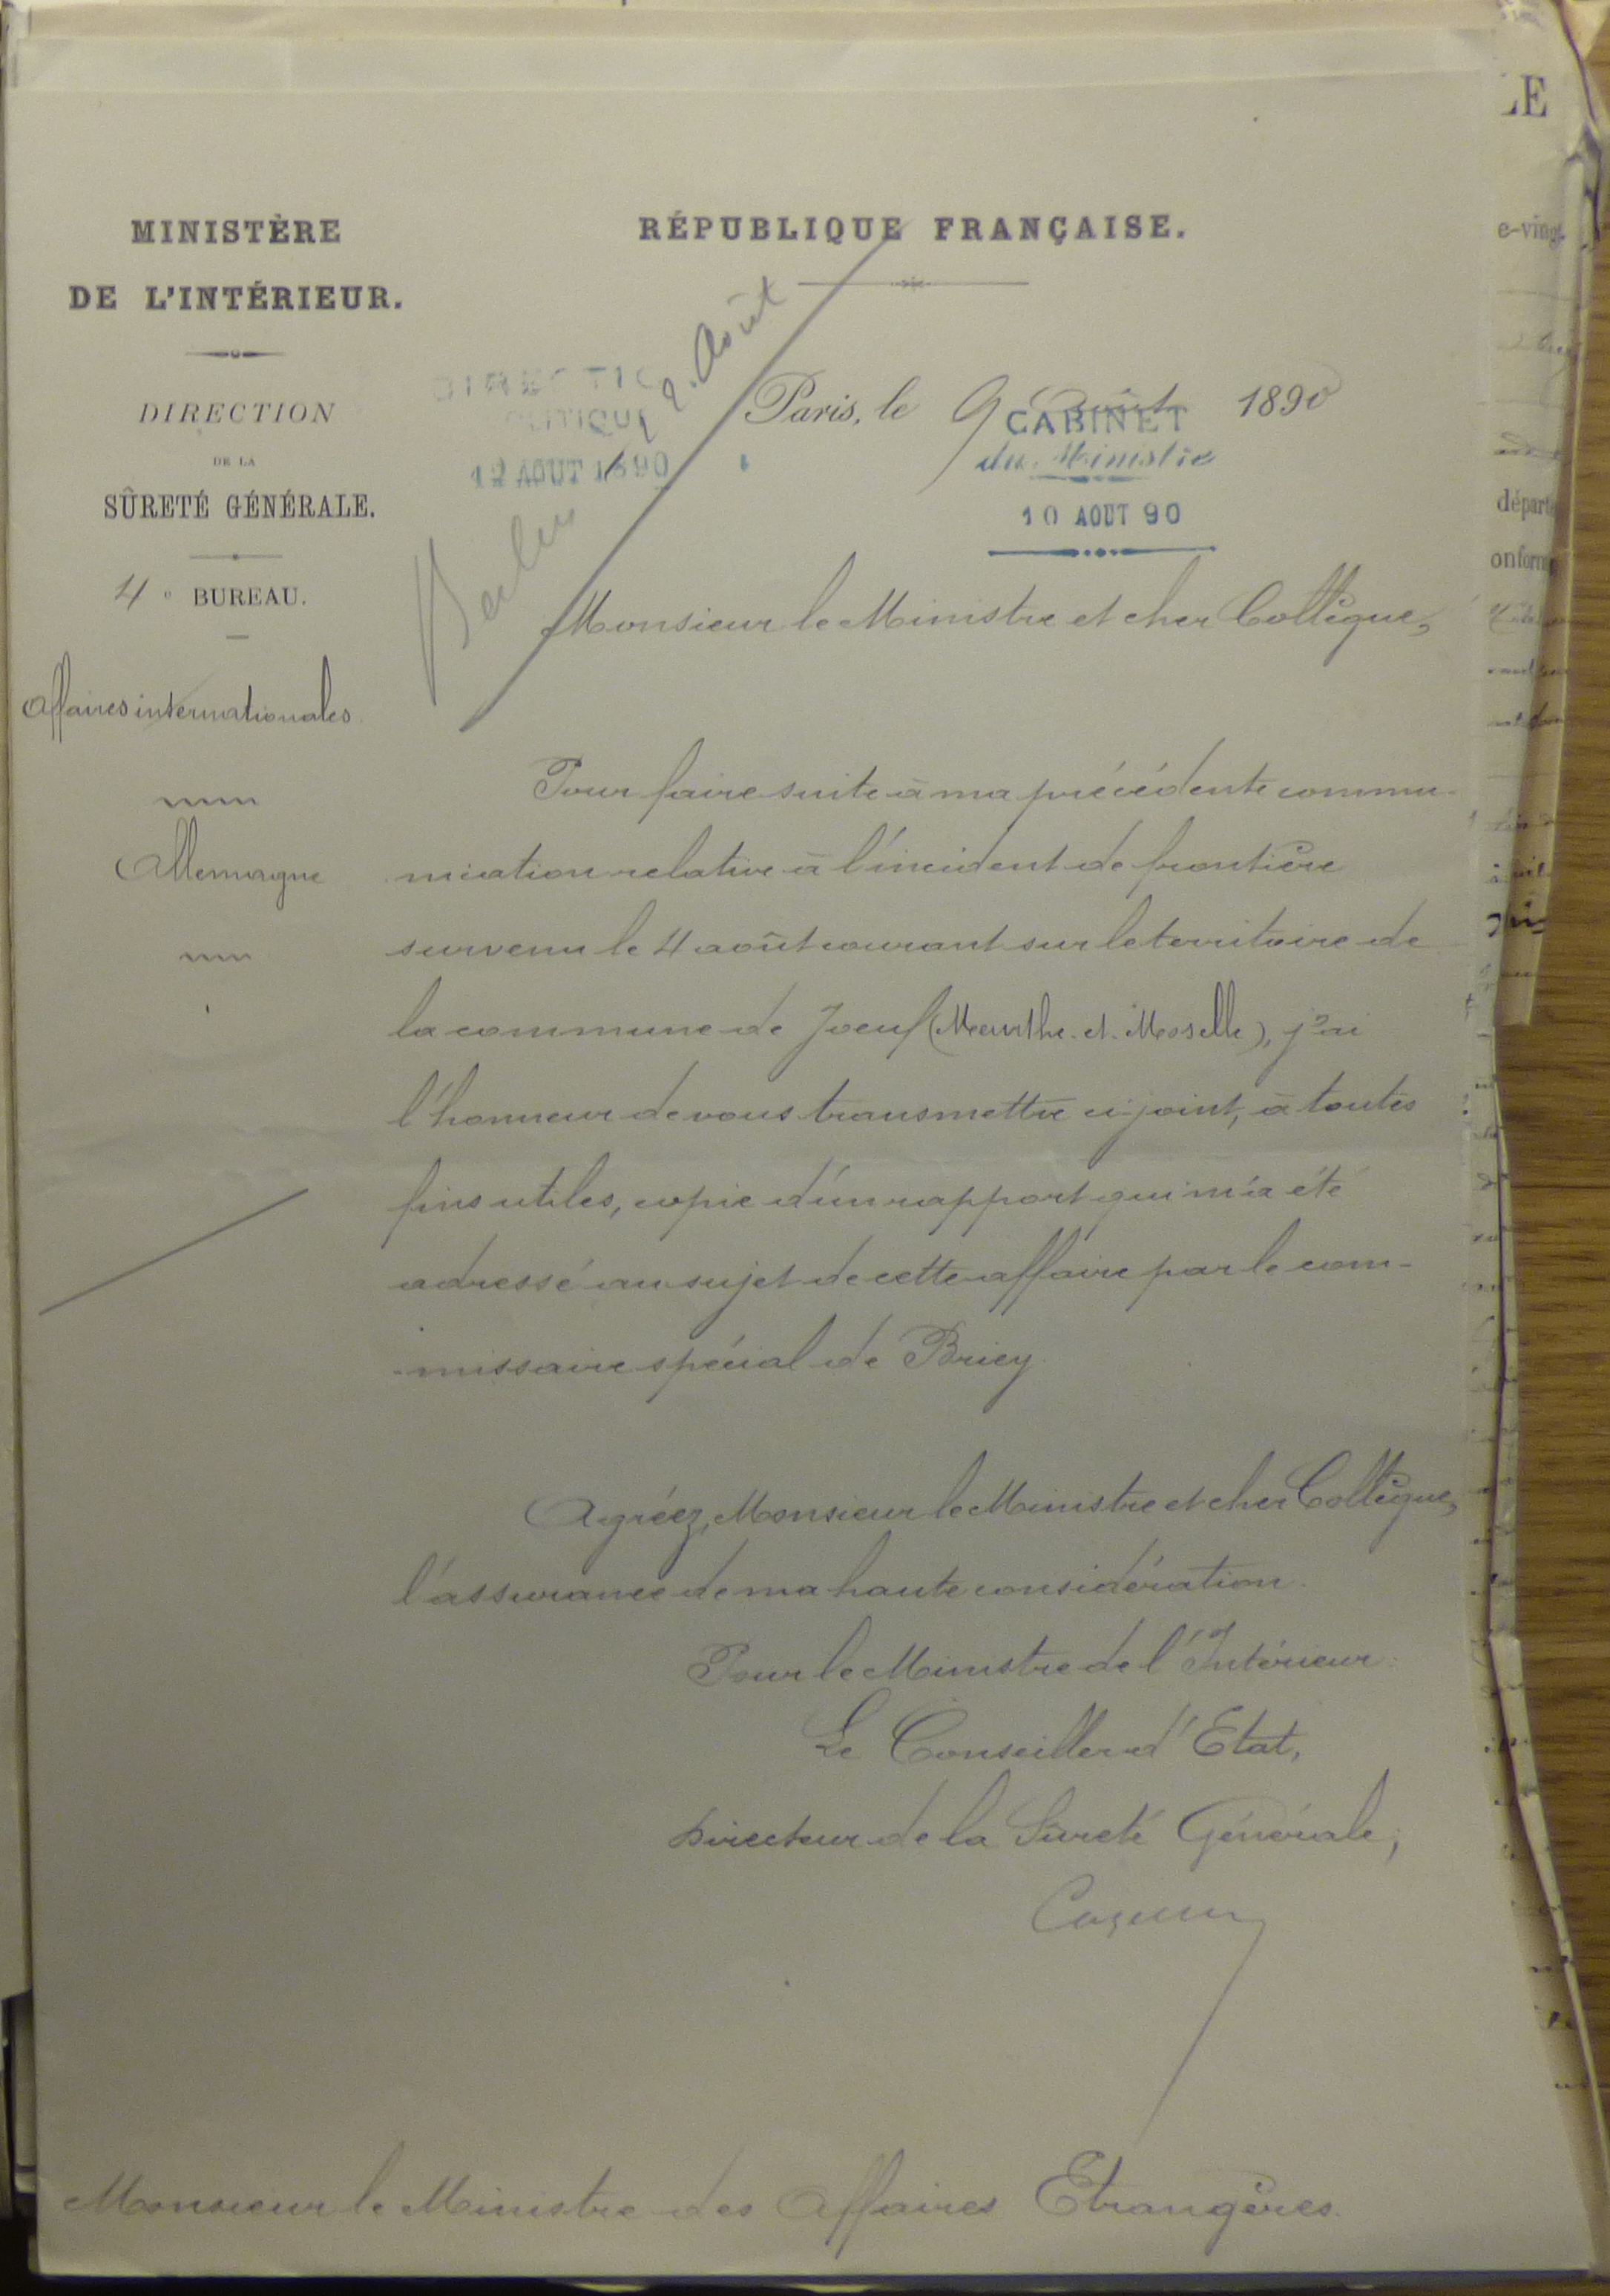 MINISTÈRE
DE L'INTÉRIEUR.
DIRECTION
DE LA
SÛRETÉ GÉNÉRALE.
4e BUREAU.
Affaires internationales
Allemagne
RÉPUBLIQUE FRANÇAISE.
Berlin 12 Août
12 AOUT 1890
Paris, le 9 Août 1890
CABINET
du Ministre
10 AOUT 90
Monsieur le Ministre et cher Collègue,
Pour faire suite à ma précédente commu-
nication relative à l'incident de frontière
survenu le 4 août courant sur le territoire de
la commune de Joeuf (Meurthe-et-Moselle), j'ai
l'honneur de vous transmettre ci-joint, à toutes
fins utiles, copie d'un rapport qui m'a été
adressé au sujet de cette affaire par le com-
-missaire spécial de Briey.
Agréez, Monsieur le Ministre et cher Collègue,
l'assurance de ma haute considération.
Pour le Ministre de l'Intérieur
Le Conseiller d'Etat,
Directeur de la Sûreté Générale,
Monsieur le Ministre des Affaires Etrangères.